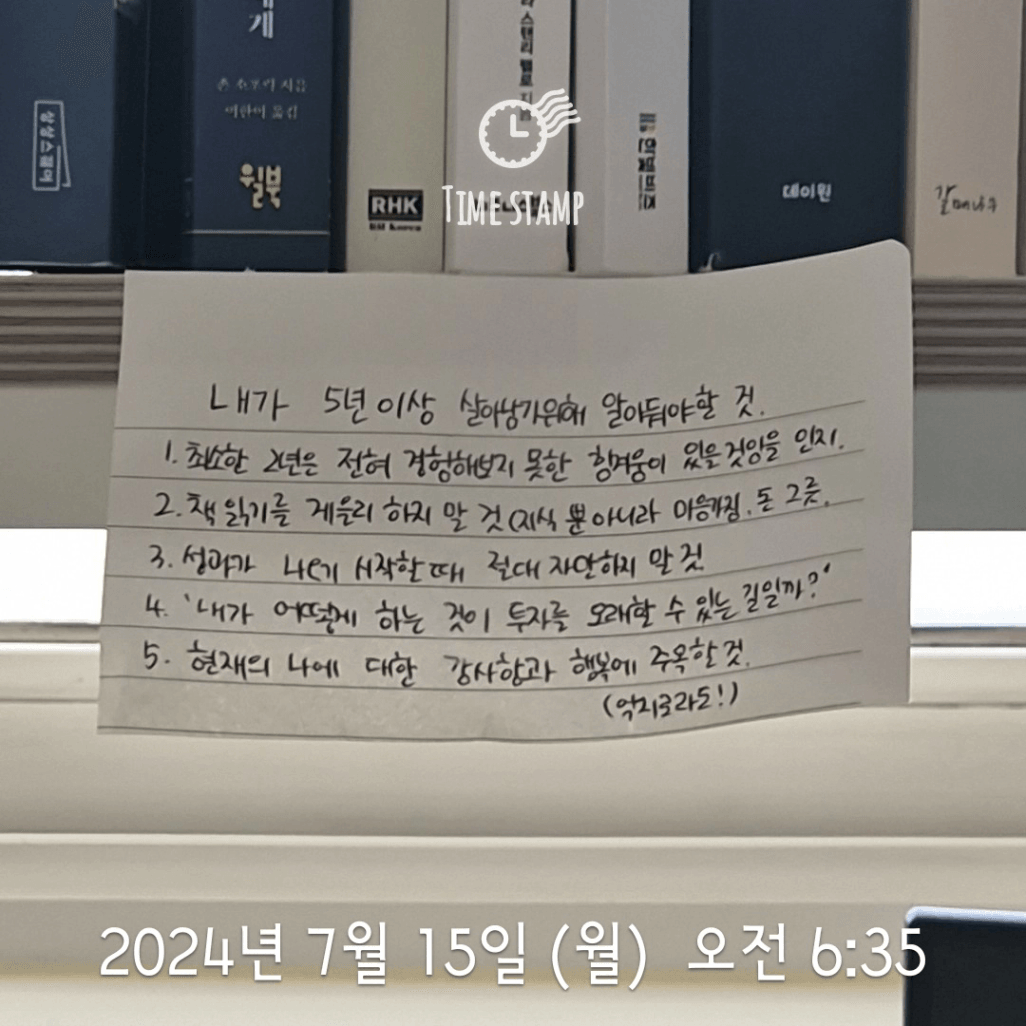 게
존 소포릭 지음
이한이 옮김
윌북
삼성스퀘어
RHK
RH Korea
스탠리 밸로 지음
한빛비즈
데이원
갈매나무
TIME STAMP
내가 5년 이상 살아남기위해 알아둬야할 것.
1. 최소한 2년은 전혀 경험해보지 못한 힘겨움이 있을것임을 인지.
2. 책 읽기를 게을리 하지 말 것 (지식 뿐 아니라 마음가짐. 돈 그릇.
3. 성과가 나기 시작할때 절대 자만하지 말 것
4. '내가 어떻게 하는 것이 투자를 오래할 수 있는 길일까?'
5. 현재의 나에 대한 감사함과 행복에 주목할 것.
(억지로라도!)
2024년 7월 15일 (월) 오전 6:35